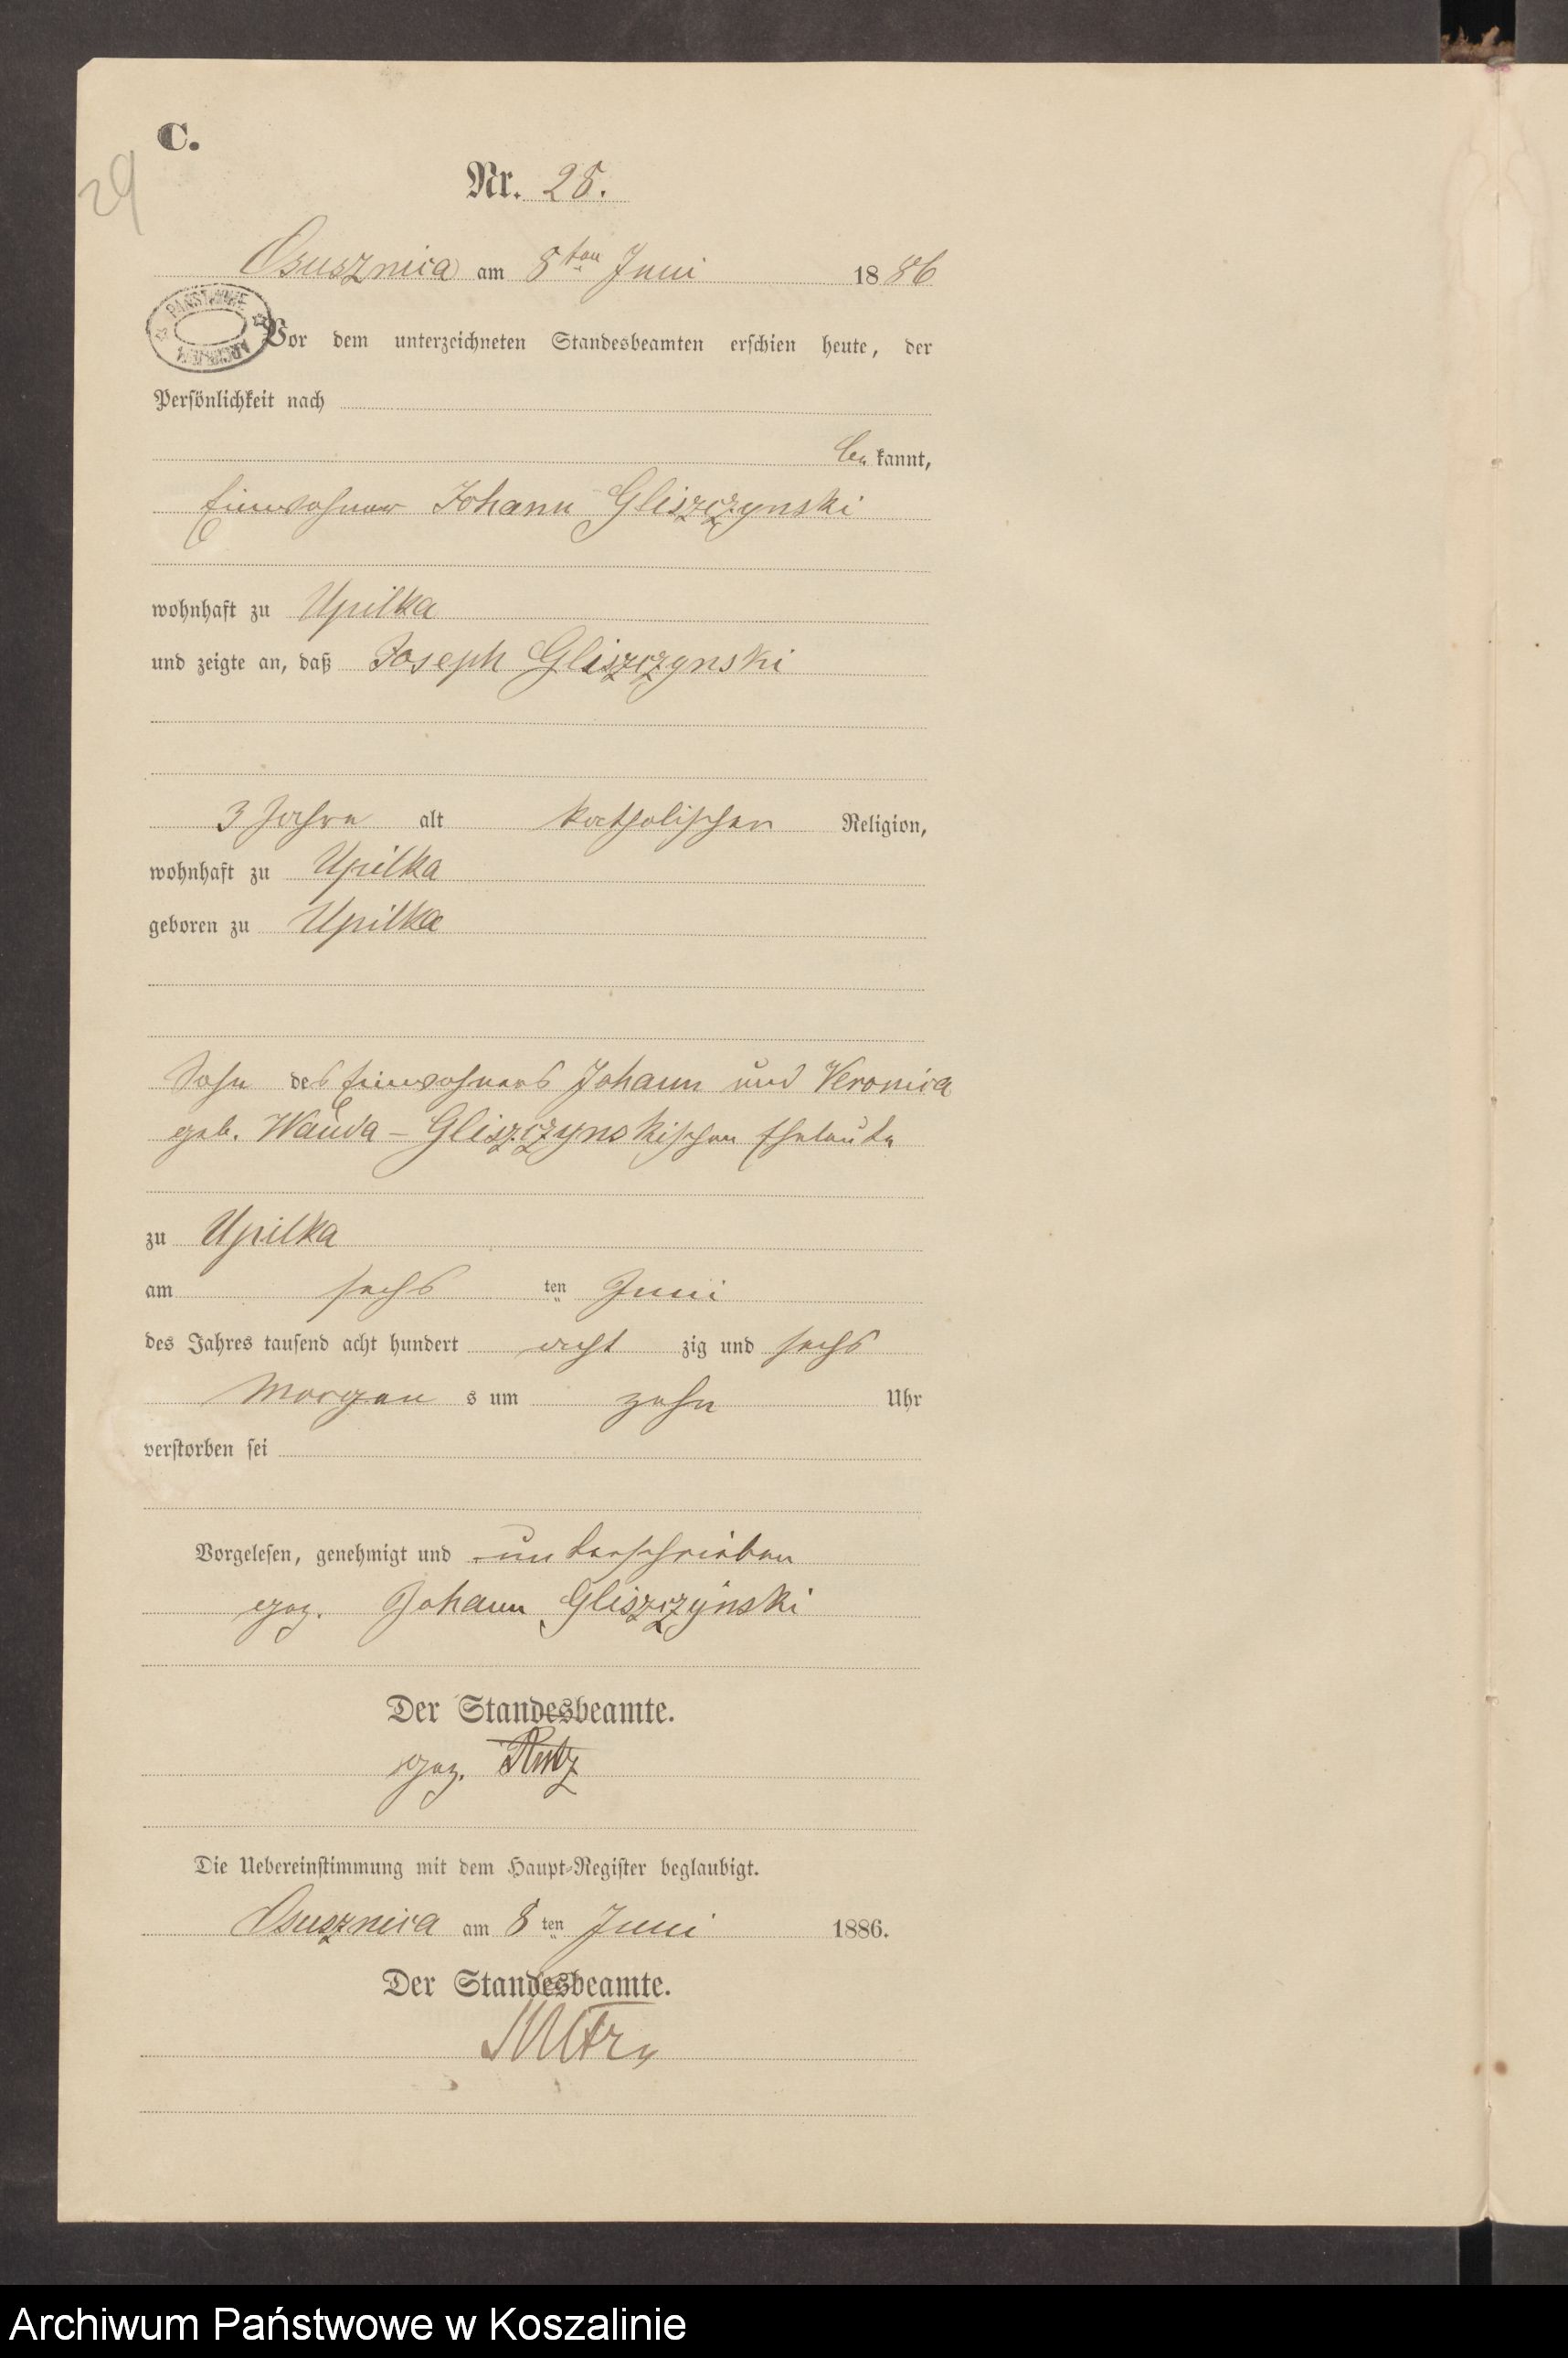 C.
29
Nr. 28.
Osusznica am 8ten Juni 1886
PAŃSTWOWE ARCHIWUM
Vor dem unterzeichneten Standesbeamten erschien heute, der
Persönlichkeit nach
be kannt,
Einwohner Johann Gliszczynski
wohnhaft zu Upilka
und zeigte an, daß Joseph Gliszczynski
3 Jahre alt katholischer Religion,
wohnhaft zu Upilka
geboren zu Upilka
Sohn des Einwohners Johann und Veronica
geb. Wanda - Gliszczynskischen Eheleute
zu Upilka
am sechs ten Juni
des Jahres tausend acht hundert acht zig und sechs
Morgen s um zehn Uhr
verstorben sei
Vorgelesen, genehmigt und unterschrieben
gez. Johann Gliszczynski
Der Standesbeamte.
gez.
Die Uebereinstimmung mit dem Haupt-Register beglaubigt.
Osusznica am 8 ten Juni 1886.
Der Standesbeamte.
Archiwum Państwowe w Koszalinie